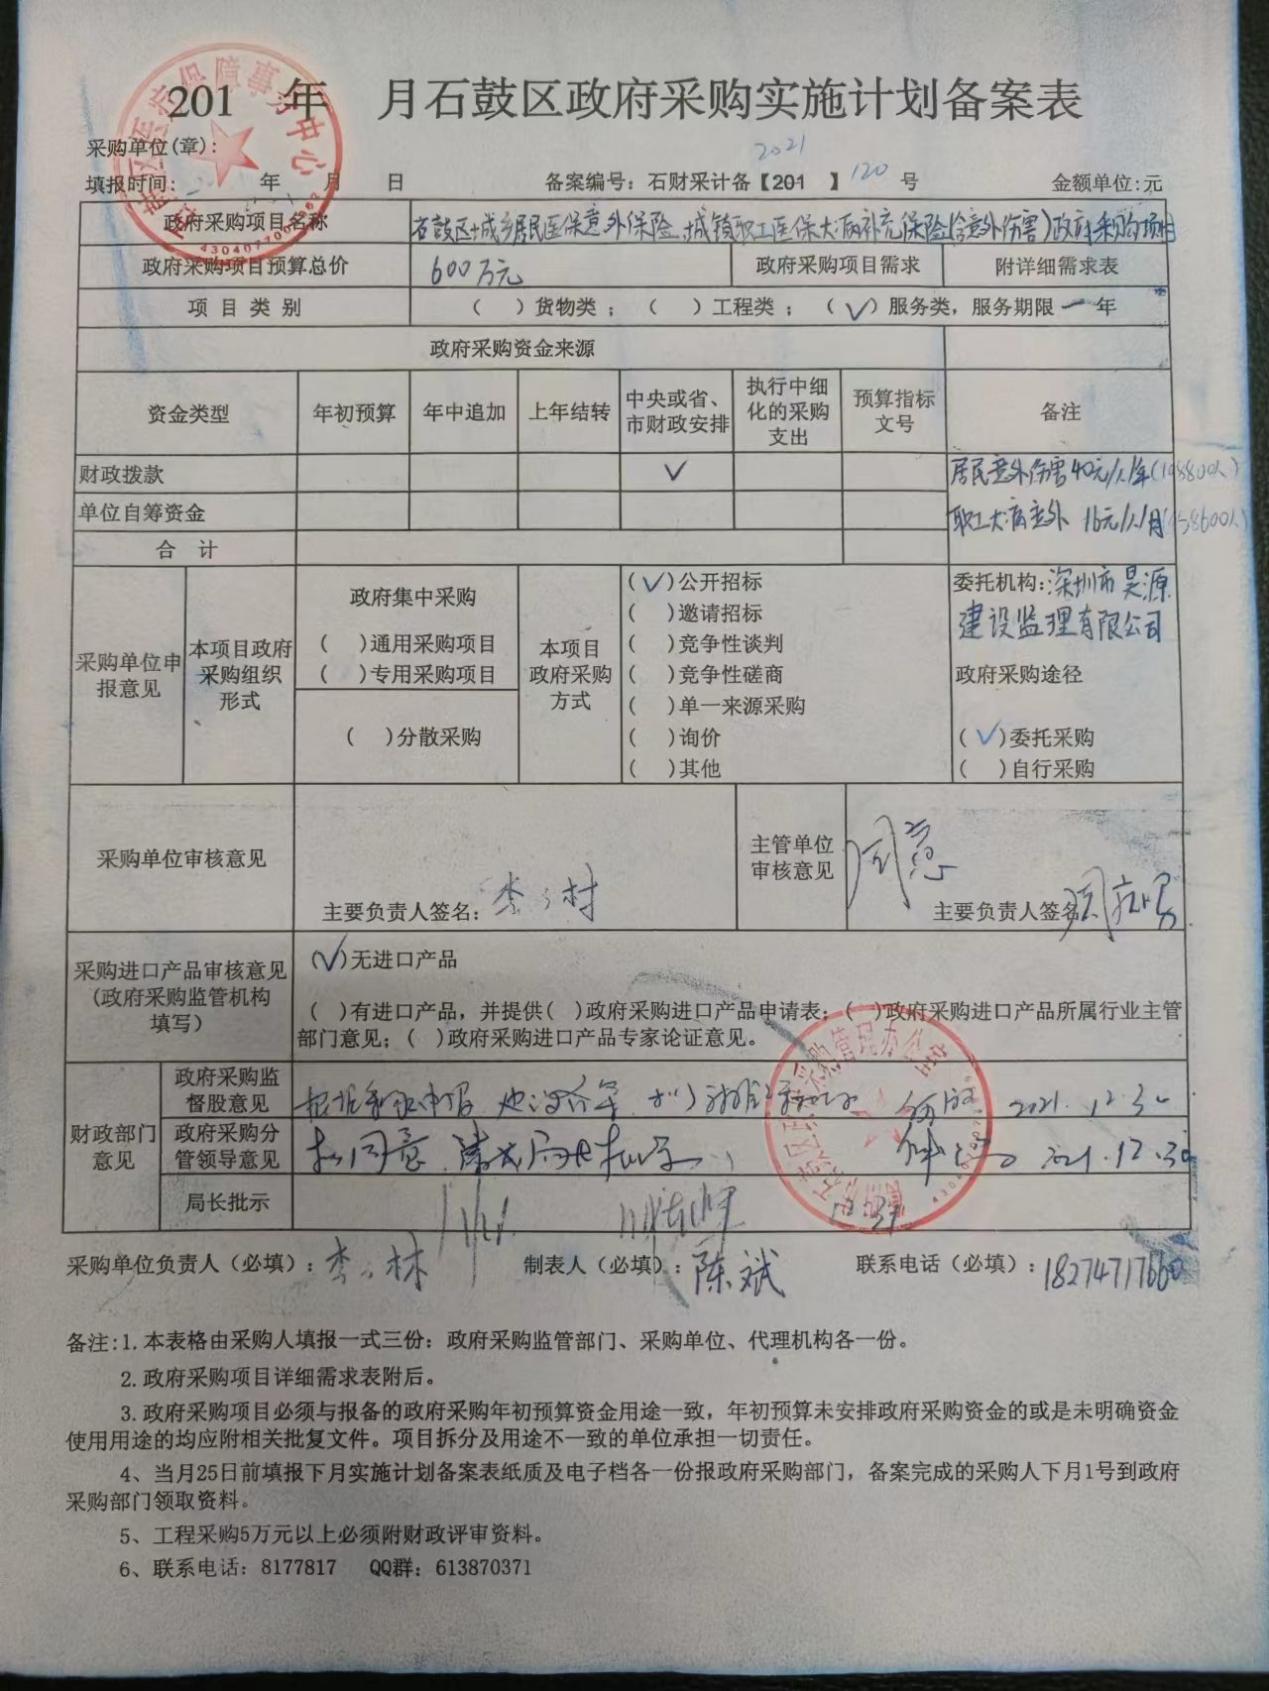 201 年 月石鼓区政府采购实施计划备案表
采购单位(章):
2021
填报时间: 年 月 日 备案编号: 石财采计备【201 】120 号 金额单位:元
政府采购项目名称 石鼓区城乡居民医保意外保险、城镇职工医保大病补充保险(含意外伤害)政府采购项目
政府采购项目预算总价 600万元 政府采购项目需求 附详细需求表
项目类别 ( )货物类; ( )工程类; (✓)服务类, 服务期限一年
政府采购资金来源
资金类型 年初预算 年中追加 上年结转 中央或省、市财政安排 执行中细化的采购支出 预算指标文号 备注
财政拨款 ✓ 居民意外伤害40元/人/年
单位自筹资金 职工大病意外 16元/人/月
合 计
采购单位申报意见
本项目政府采购组织形式
政府集中采购
( )通用采购项目
( )专用采购项目
( )分散采购
本项目政府采购方式
(✓)公开招标
( )邀请招标
( )竞争性谈判
( )竞争性磋商
( )单一来源采购
( )询价
( )其他
委托机构:深圳市昊源
建设监理有限公司
政府采购途径
(✓)委托采购
( )自行采购
采购单位审核意见
主要负责人签名:
主管单位审核意见
同意
主要负责人签名
采购进口产品审核意见
(政府采购监管机构
填写)
(✓)无进口产品
( )有进口产品, 并提供( )政府采购进口产品申请表; ( )政府采购进口产品所属行业主管
部门意见; ( )政府采购进口产品专家论证意见。
财政部门意见
政府采购监督股意见 2021.12.30
政府采购分管领导意见 同意 2021.12.30
局长批示
采购单位负责人(必填): 制表人(必填): 陈斌 联系电话(必填): 18274717660
备注:1.本表格由采购人填报一式三份: 政府采购监管部门、采购单位、代理机构各一份。
2.政府采购项目详细需求表附后。
3.政府采购项目必须与报备的政府采购年初预算资金用途一致, 年初预算未安排政府采购资金的或是未明确资金
使用用途的均应附相关批复文件。项目拆分及用途不一致的单位承担一切责任。
4、当月25日前填报下月实施计划备案表纸质及电子档各一份报政府采购部门, 备案完成的采购人下月1号到政府
采购部门领取资料。
5、工程采购5万元以上必须附财政评审资料。
6、联系电话: 8177817 QQ群: 613870371